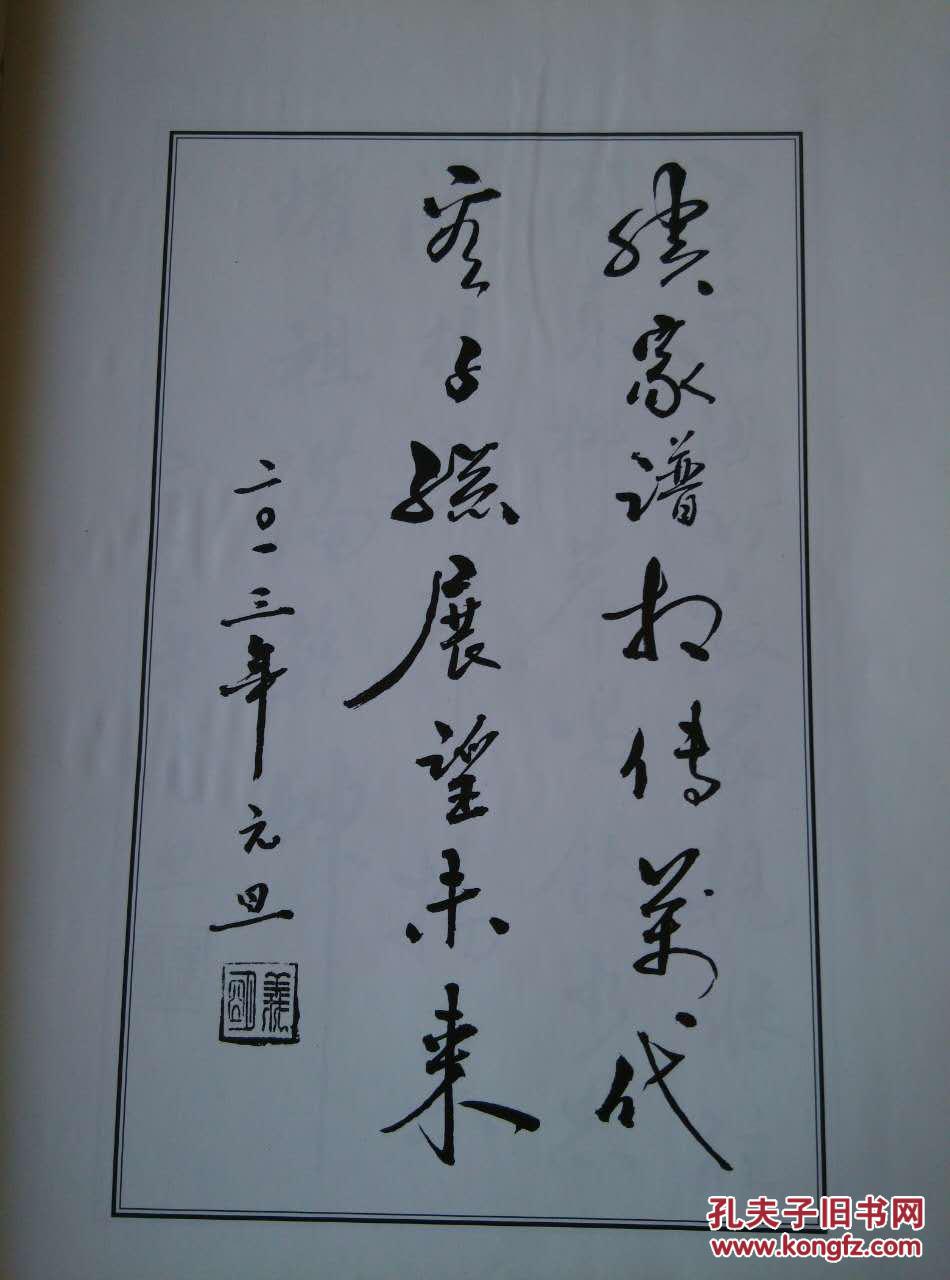 续家谱相传萬代
子孫展望未来
二〇一三年元旦
孔夫子旧书网
www.kongfz.com